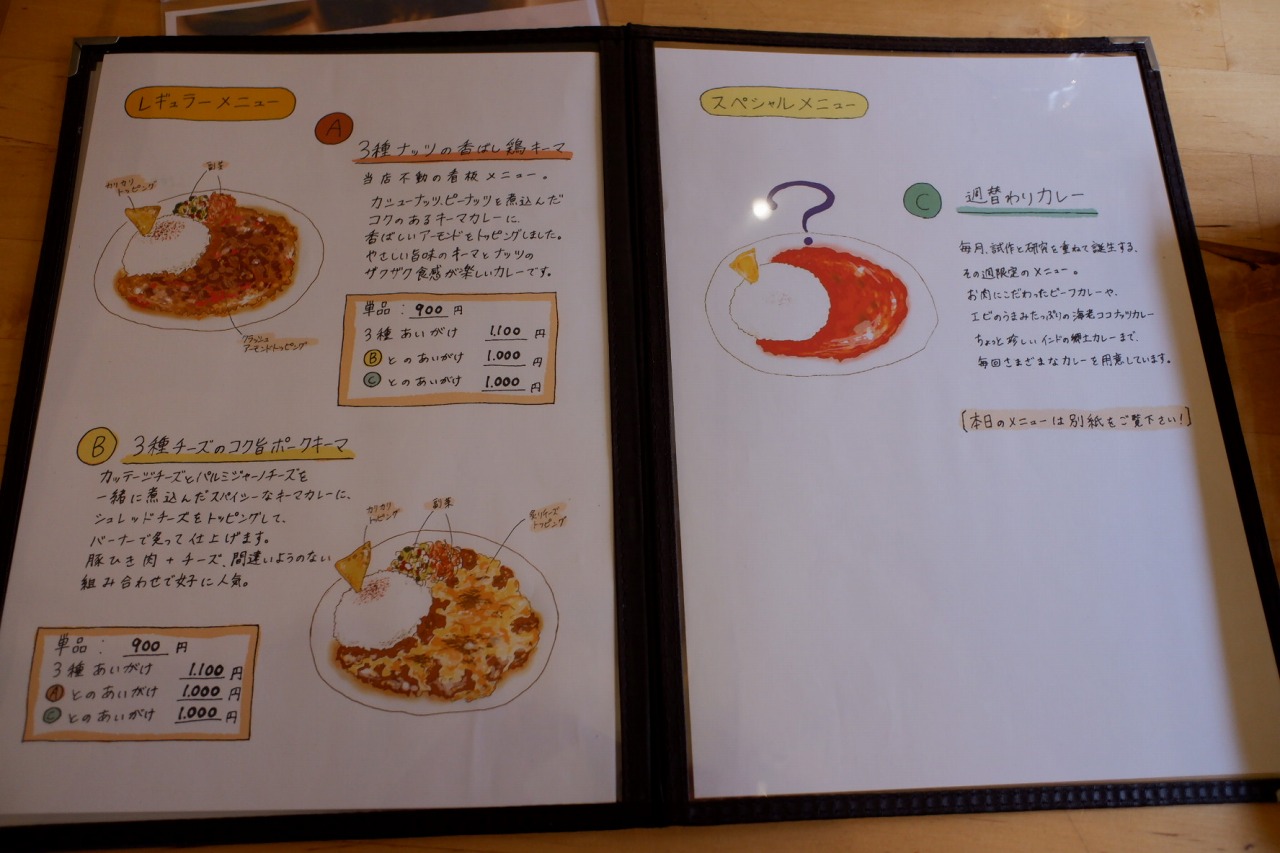 レギュラーメニュー
A
3種ナッツの香ばし鶏キーマ
当店不動の看板メニュー。
カシューナッツ、ピーナッツを煮込んだ
コクのあるキーマカレーに、
香ばしいアーモンドをトッピングしました。
やさしい旨味のキーマとナッツの
ザクザク食感が楽しいカレーです。
カリカリ
トッピング
副菜
クラッシュ
アーモンドトッピング
単品: 900円
3種あいがけ 1.100円
Bとのあいがけ 1.000円
Cとのあいがけ 1.000円
B
3種チーズのコク旨ポークキーマ
カッテージチーズとパルミジャーノチーズを
一緒に煮込んだスパイシーなキーマカレーに、
シュレッドチーズをトッピングして、
バーナーで炙って仕上げます。
豚ひき肉+チーズ、間違いようのない
組み合わせで女子に人気。
カリカリ
トッピング
副菜
炙りチーズ
トッピング
単品: 900円
3種あいがけ 1.100円
Aとのあいがけ 1.000円
Cとのあいがけ 1.000円
スペシャルメニュー
?
C
週替わりカレー
毎月、試作と研究を重ねて誕生する、
その週限定のメニュー。
お肉にこだわったビーフカレーや、
エビのうまみたっぷりの海老ココナッツカレー
ちょっと珍しいインドの郷土カレーまで、
毎回さまざまなカレーを用意しています。
[本日のメニューは別紙をご覧下さい!]